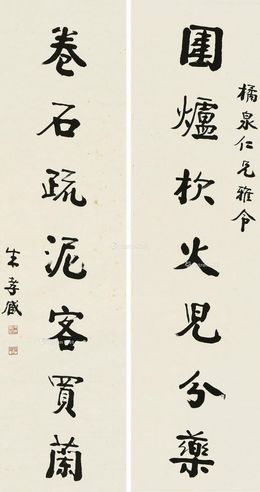 橘泉仁兄雅令
圍爐火兒分藥
卷石疏泥客買蘭
朱孝臧